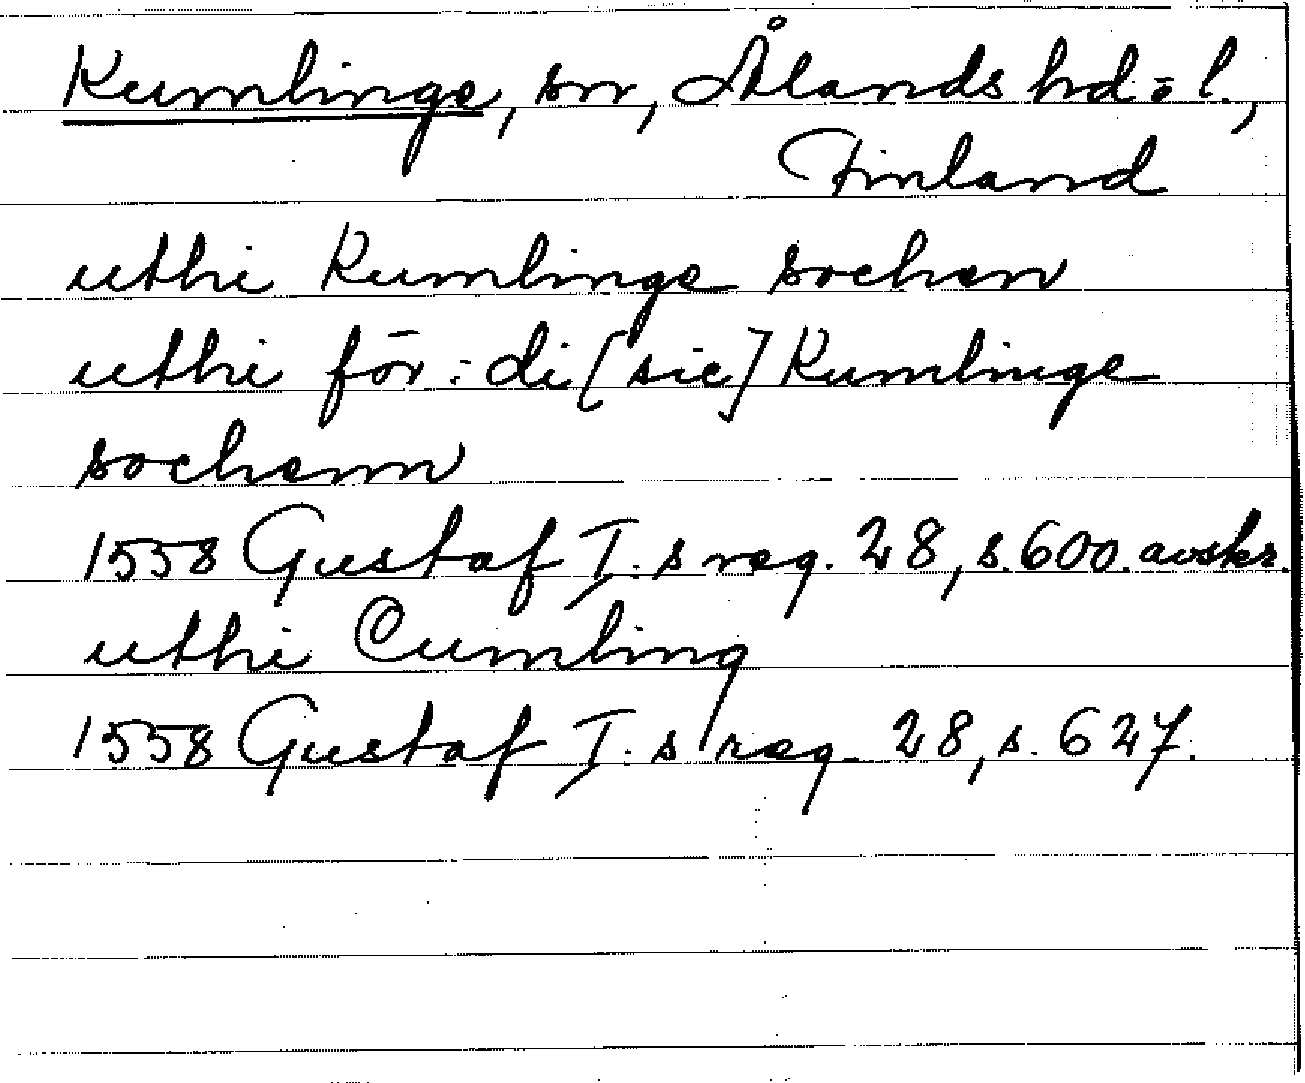 Kumlinge, sn, Ålands hd o l.,
Finland
uthi Kumlinge sochen
uthi för: di [sic] Kumlinge
sochenn
1558 Gustaf I:s reg. 28, s. 600. avskr.
uthi Cumling
1558 Gustaf I:s reg. 28, s. 627.